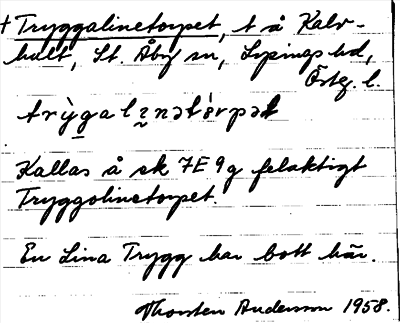 † Tryggalinetorpet, t å Kalv-
hult, St. Åby sn, Lysings hd,
Östg. l.
Kallas å ek 7E9g felaktigt
Tryggolinetorpet.
En Lina Trygg har bott här.
Thorsten Andersson 1958.